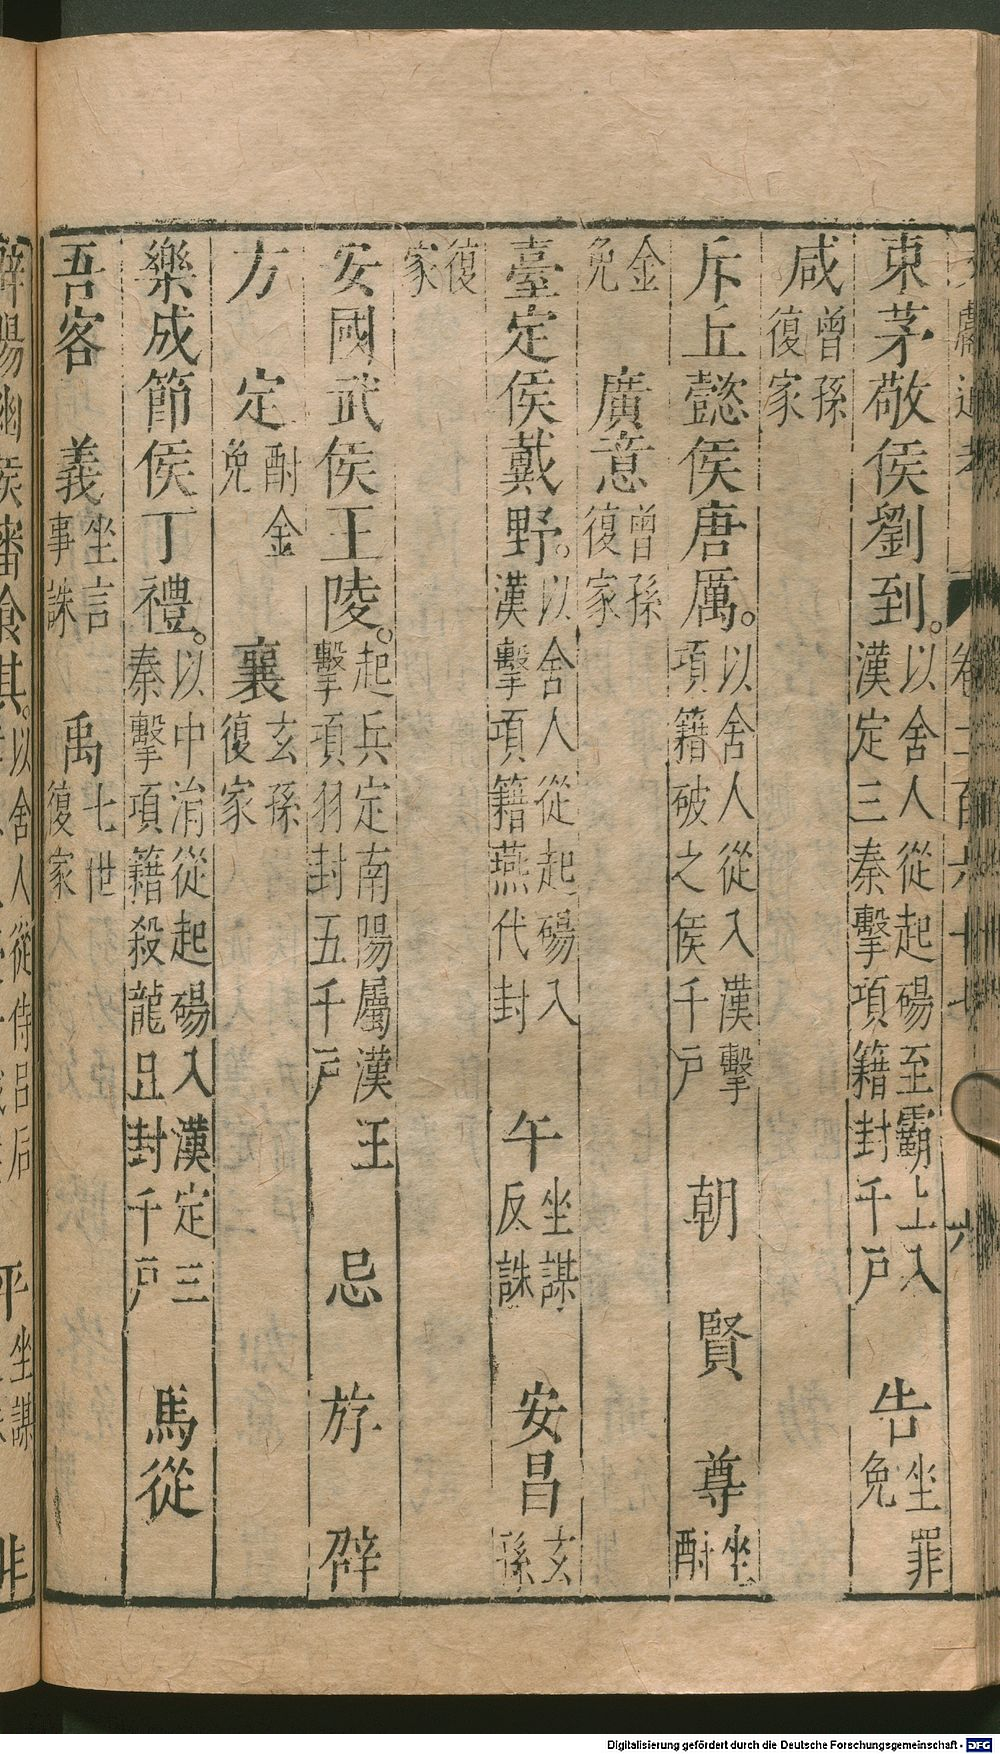 卷二百六十七 六
東茅敬侯劉到。以舍人從起碭至霸上入漢定三秦擊項籍封千戶 告坐罪免
咸曾孫復家
斥丘懿侯唐厲。以舍人從入漢擊項籍破之侯千戶 朝 賢 尊坐酎
金免 廣意曾孫復家
臺定侯戴野。以舍人從起碭入漢擊項籍燕代封 午坐謀反誅 安昌玄孫
復家
安國武侯王陵。起兵定南陽屬漢王擊項羽封五千戶 忌 斿 辟
方 定酎金免 襄玄孫復家
樂成節侯丁禮。以中涓從起碭入漢定三秦擊項籍殺龍且封千戶 馬從
吾客 義坐言事誅 禹七世復家
辟陽幽侯審食其。以舍人從侍呂后 平坐謀
Digitalisierung gefördert durch die Deutsche Forschungsgemeinschaft - DFG